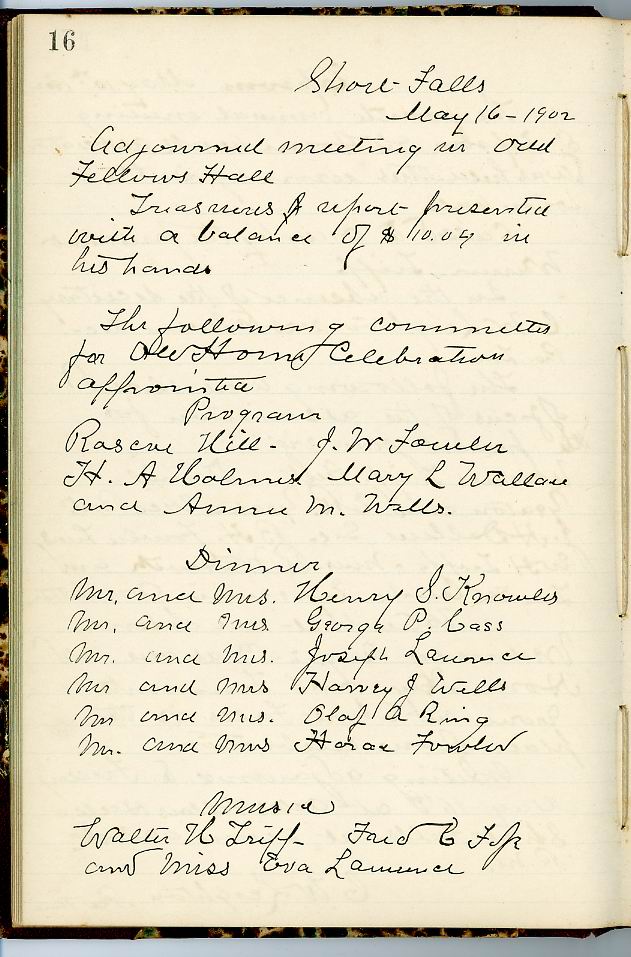 16
Short Falls
May 16-1902
Adjourned meeting in Odd
Fellows Hall
Treasurers report presented
with a balance of $10.04 in
his hands
The following committees
for Old Home Celebration
appointed
Program
Roscoe Hill - J. W Fowler
H. A Holmes Mary L Wallace
and Annie M. Wells.
Dinner
Mr. and Mrs. Henry S. Knowles
Mr. and Mrs George P. Cass
Mr. and Mrs. Joseph Lawrence
Mr and Mrs Harvey J Wells
Mr and Mrs. Olof A Ring
Mr. and Mrs Horace Fowler
Music
Walter H Tripp - Fred C Foss
and Miss Eva Lawrence